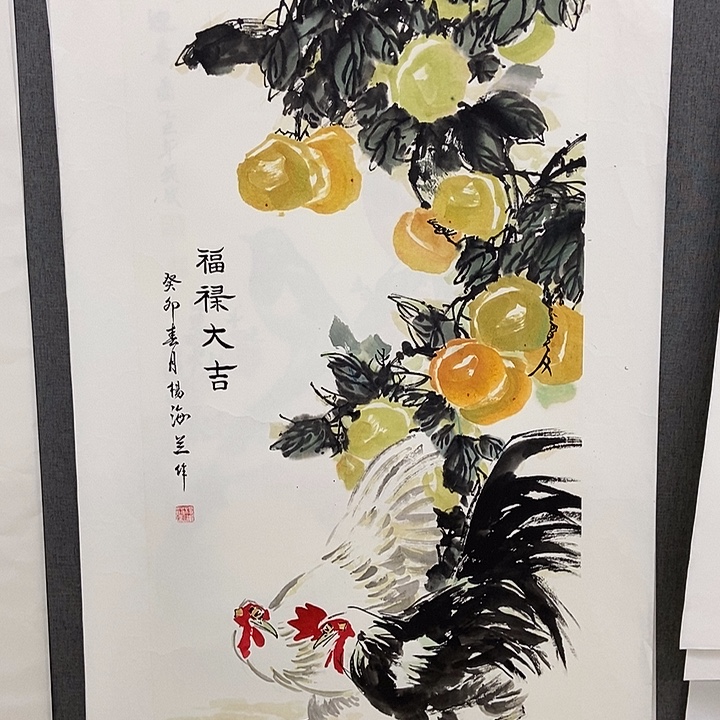 福禄大吉
癸卯春月杨海兰作